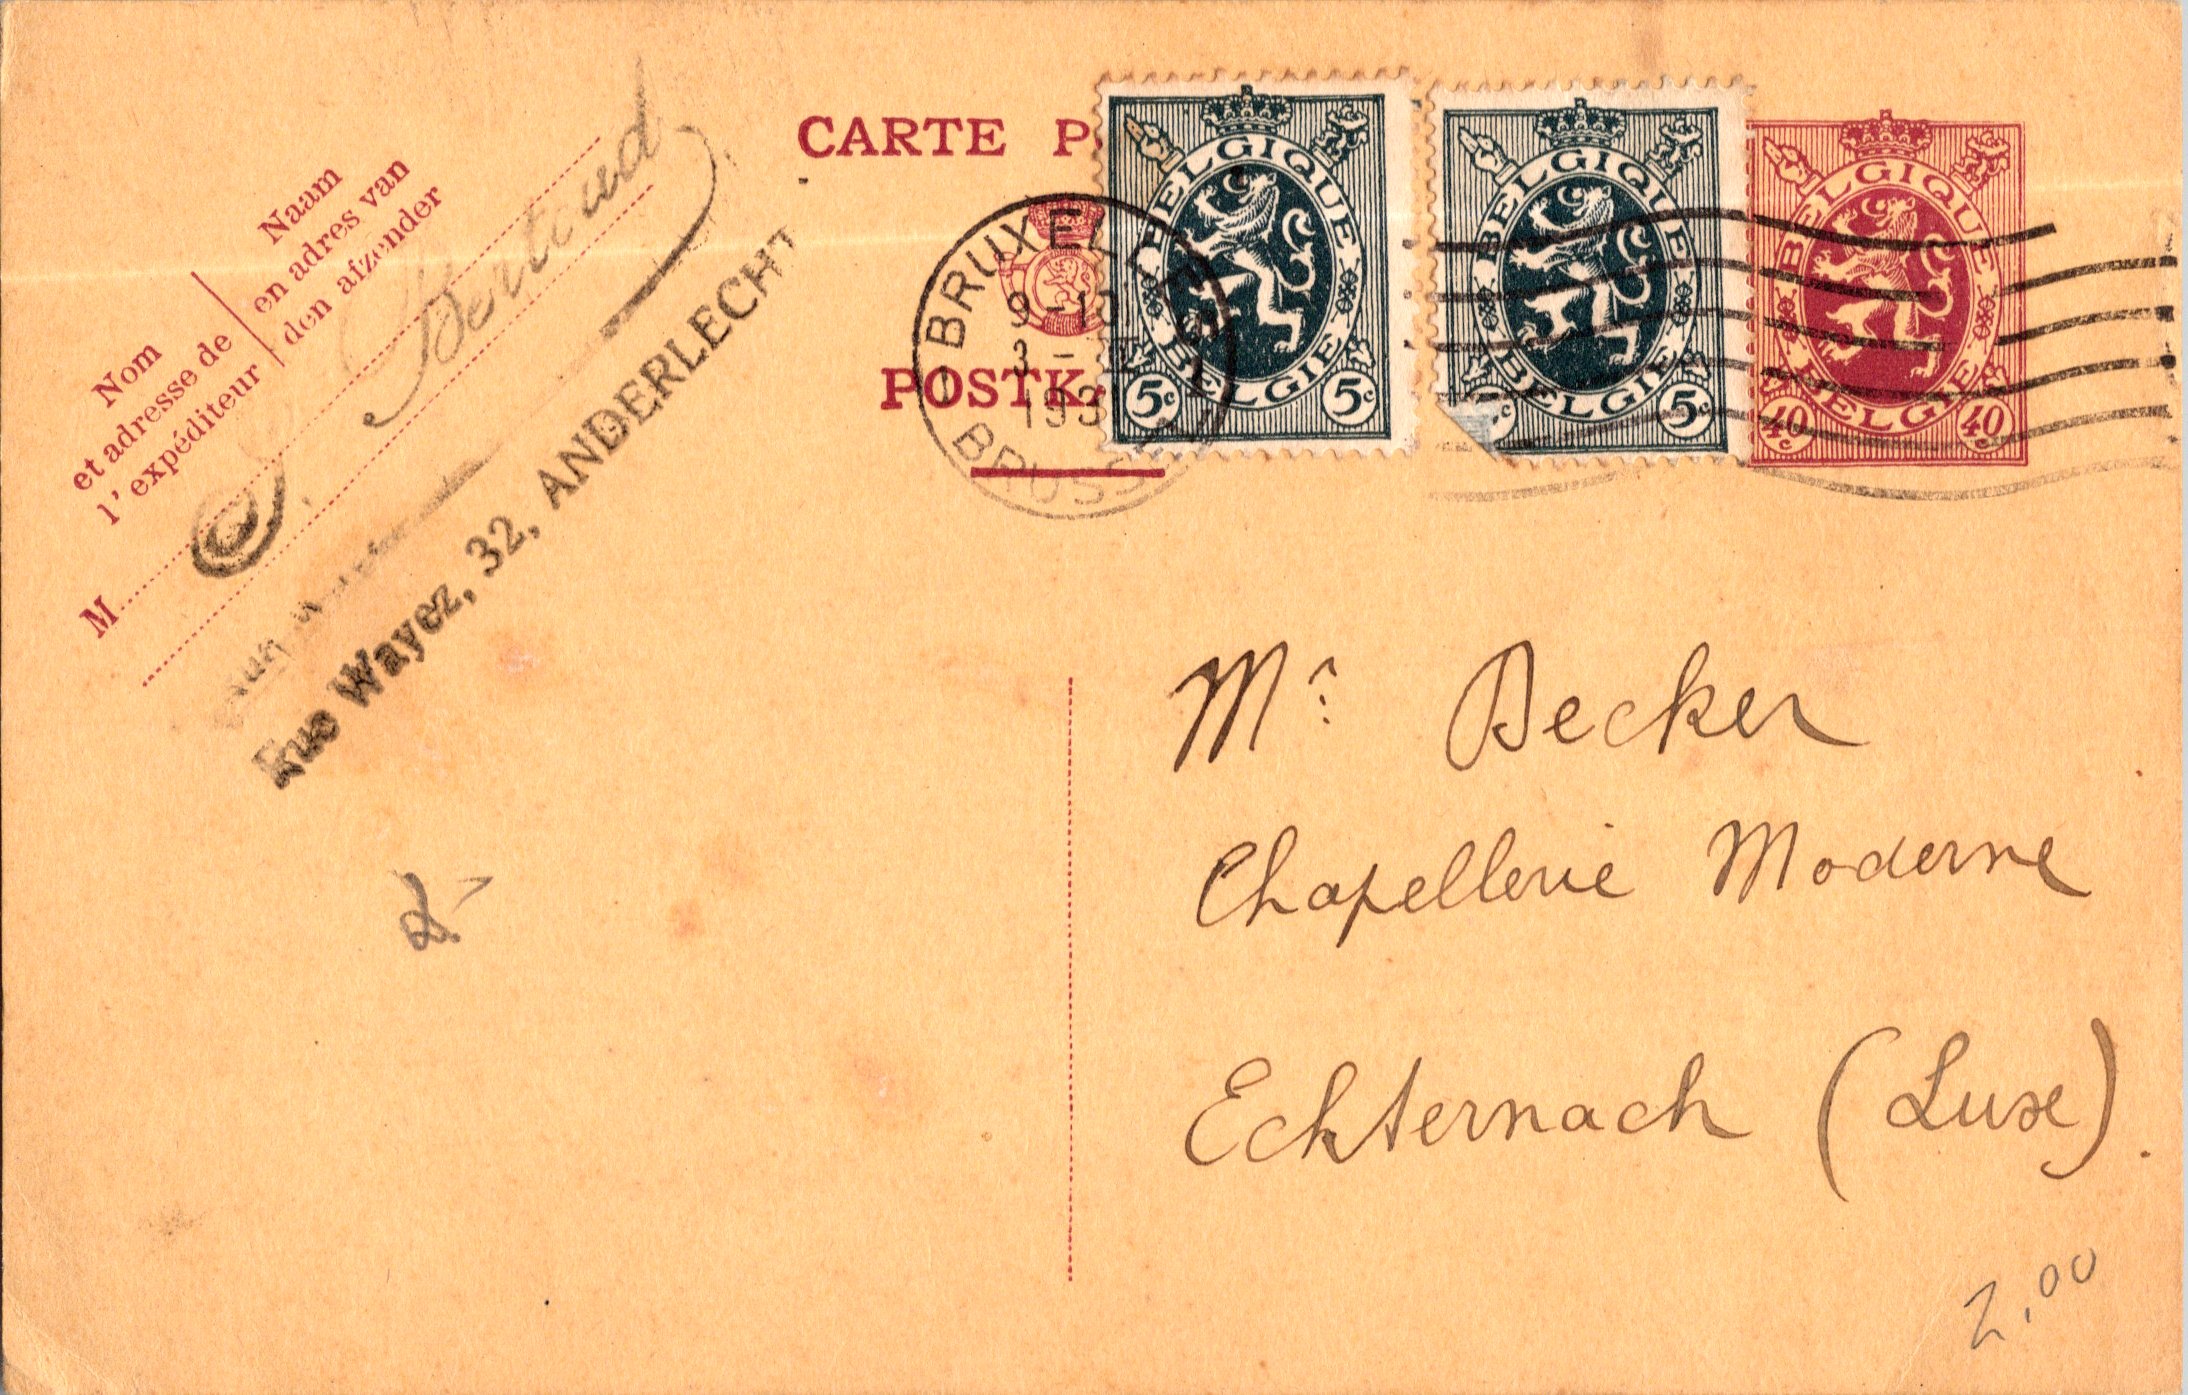 CARTE P
POSTK
Nom
et adresse de
l'expéditeur
Naam
en adres van
den afzender
M
Rue Wayez, 32, ANDERLECHT
BRUXELLES 1
9-10
3 -
193
BRUSSEL
BELGIQUE
BELGIE
5c 5c
BELGIQUE
BELGIE
5c
BELGIQUE
BELGIE
40c 40c
Mr Becker
Chapellerie Moderne
Echternach (Luxe).
2,00